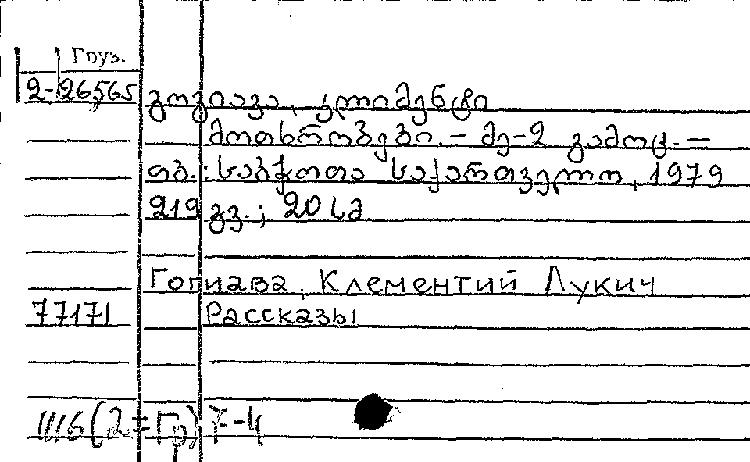 Груз.
2-26,565
გოგიავა, კლიმენტი
მოთხრობები. – მე-2 გამოც. –
თბ.: საბჭოთა საქართველო, 1979
219 გვ.; 20 სმ
Гогиава, Клементий Лукич
77171
Рассказы
Ш6(2=Гр)7-4